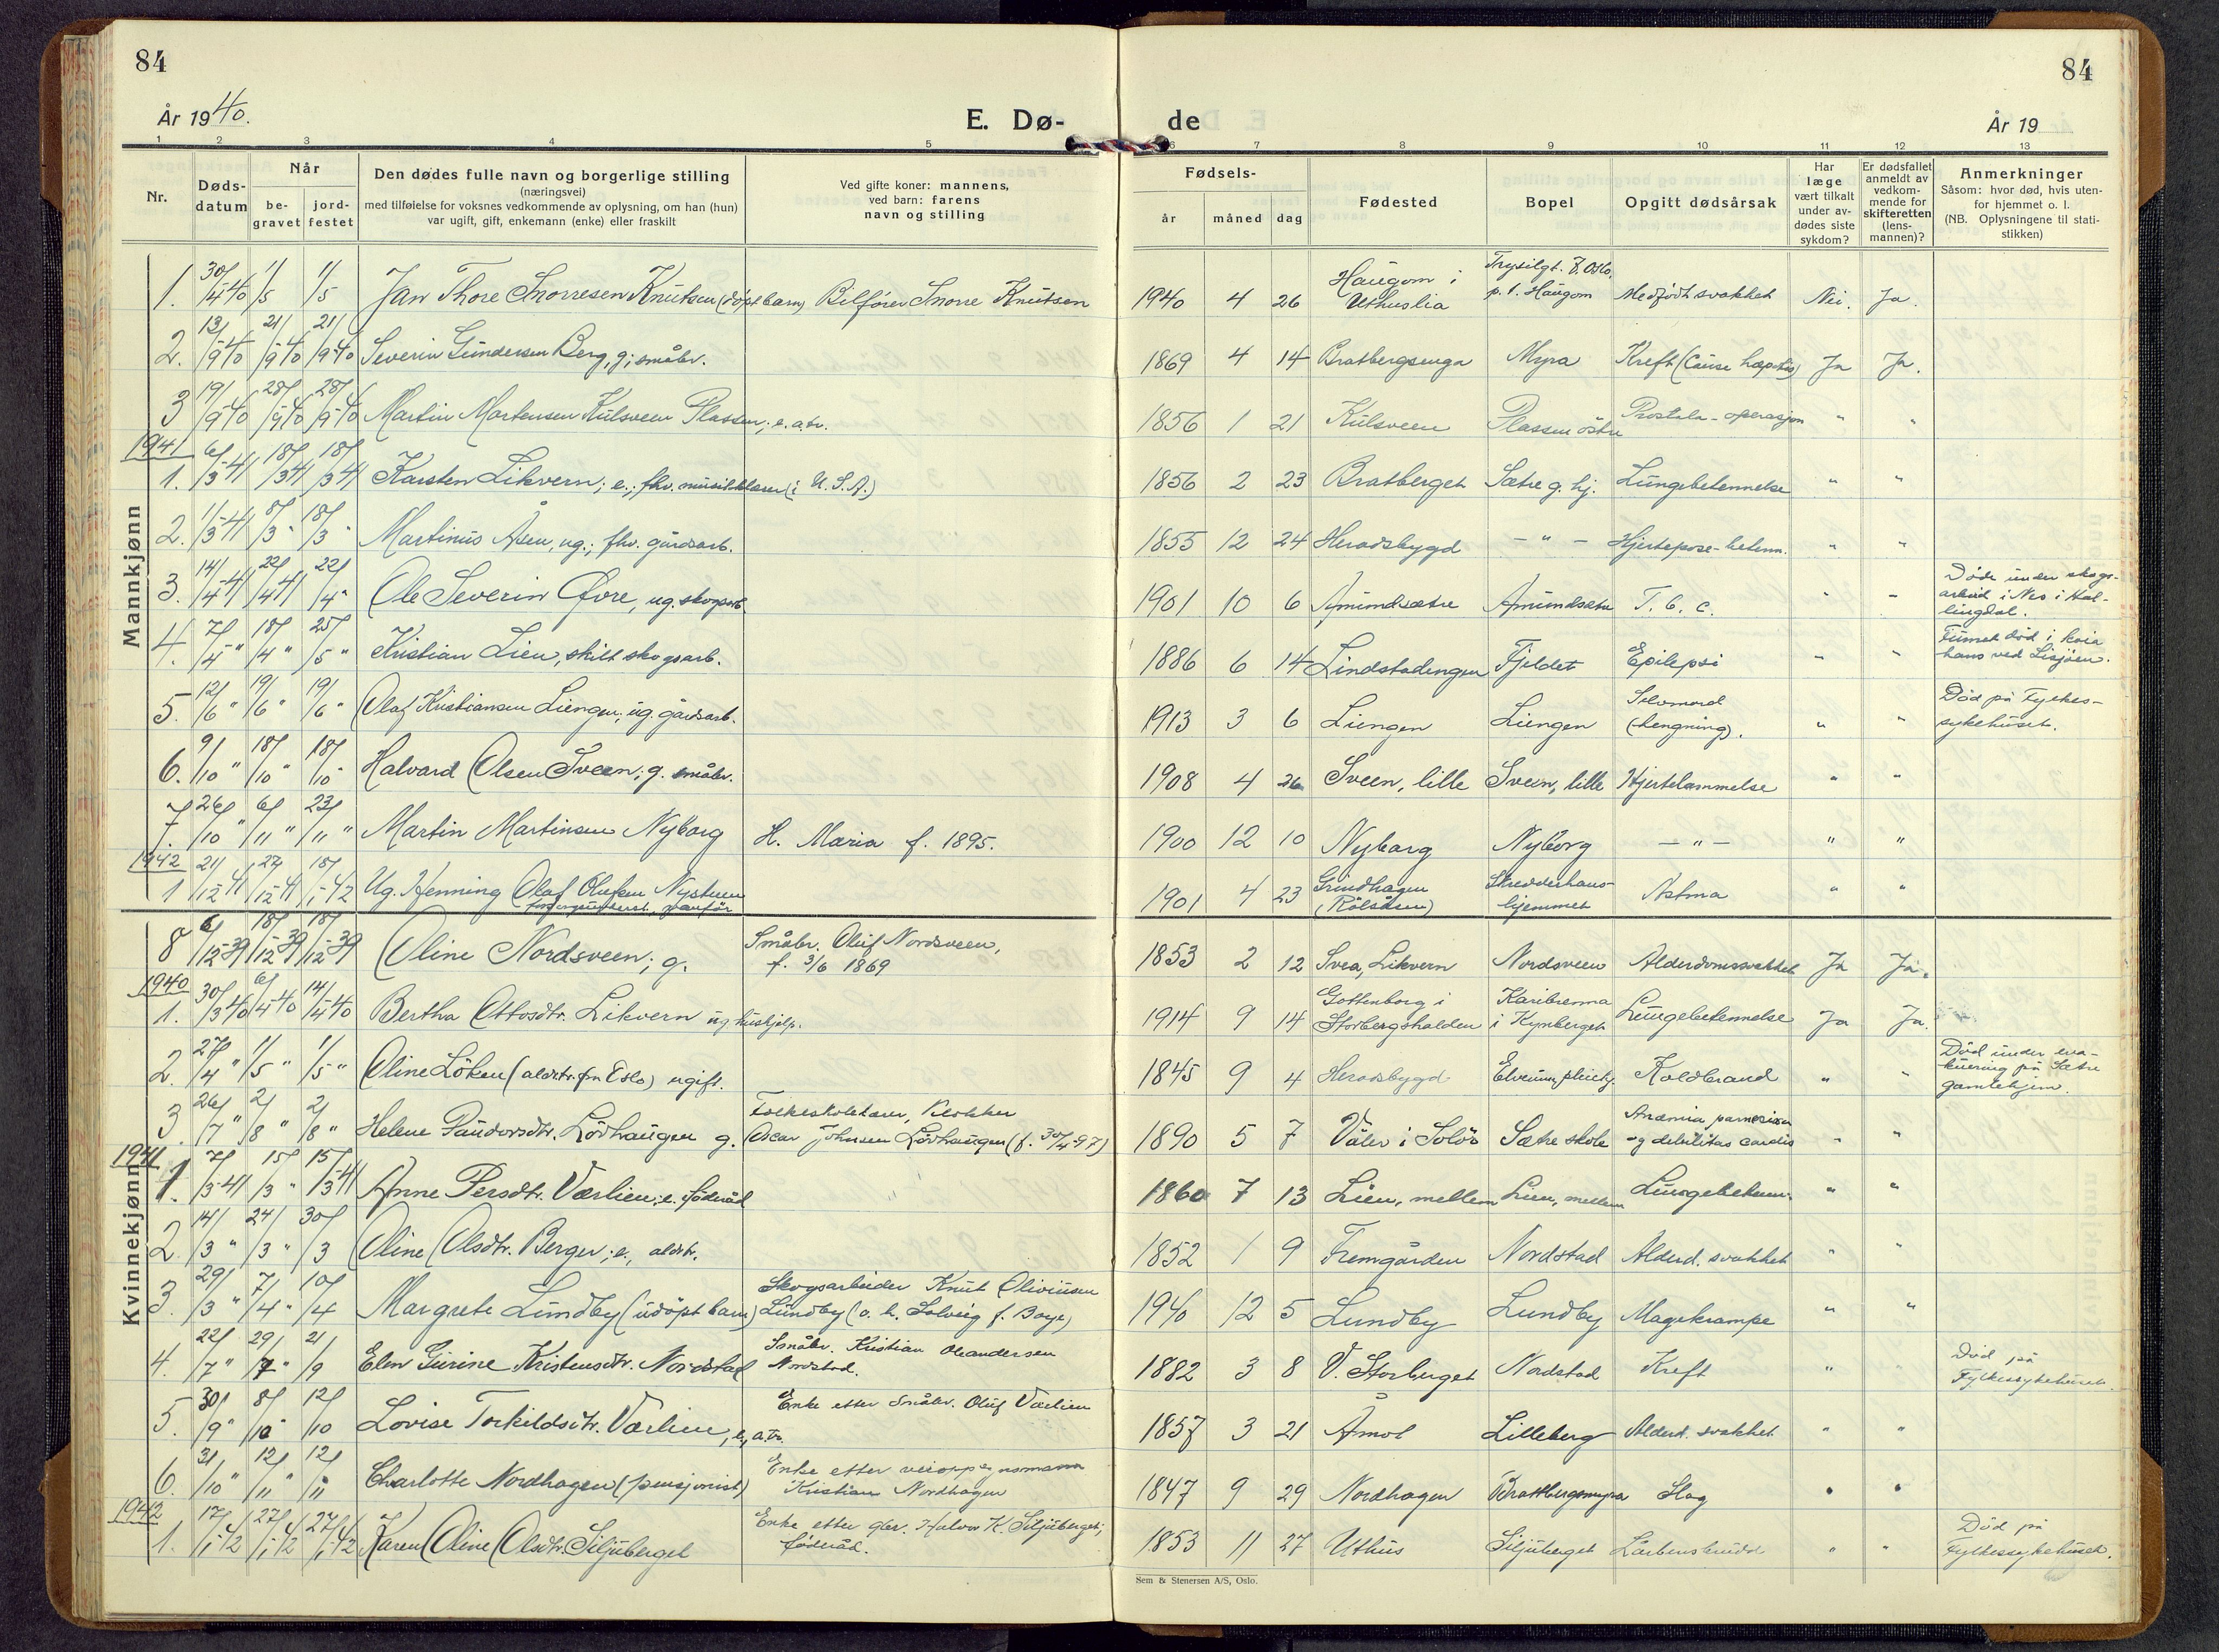 84
84
År 1940.
E. Dø-
de
År 19
1 2 3 4 5 6 7 8 9 10 11 12 13
Nr.
Døds-
datum
Når
be-
gravet
jord-
festet
Den dødes fulle navn og borgerlige stilling
(næringsvei)
med tilføielse for voksnes vedkommende av oplysning, om han (hun)
var ugift, gift, enkemann (enke) eller fraskilt
Ved gifte koner: mannens,
ved barn: farens
navn og stilling
Fødsels-
år måned dag
Fødested
Bopel
Opgitt dødsårsak
Har
læge
vært tilkalt
under av-
dødes siste
sykdom?
Er dødsfallet
anmeldt av
vedkom-
mende for
skifteretten
(lens-
mannen)?
Anmerkninger
Såsom: hvor død, hvis uten-
for hjemmet o. l.
(NB. Oplysningene til stati-
stikken)
Mannkjønn
1. 30/4-40 1/5 1/5 Jan Thore Snorresen Knutsen (døpt barn) Bilfører Snorre Knutsen 1940 4 26 Haugom i Uthuslia Trysilgt. 7. Oslo, p. t. Haugom Medfødt svakhet Nei. Ja.
2. 13/9-40 21/9-40 21/9-40 Severin Gundersen Berg, g; småbr. 1869 4 14 Bratbergsenga Myra Kreft Ja Ja.
3 19/9-40 28/9-40 28/9-40 Martin Martensen Kulsveen Plassen; e. a.tr. 1856 1 21 Kulsveen Plassen østre Prostata-operasjon " "
1941
1. 6/3-41 18/3 41 18/3 41 Karsten Likvern; e.; fhv. musiklærer (i U.S.A.) 1856 2 23 Bratberget Sætre g. hj. Lungebetennelse " "
2. 1/3-41 8/3 " 18/3 " Martinus Åsen, ug.; fhv. gårdsarb. 1855 12 24 Heradsbygd — " — Hjertepose-betenn. " "
3. 14/4-41 22/4 41 22/4 " Ole Severin Øvre, ug. skogsarb 1901 10 6 Amundsætre Amundsætre T. b. c. " " Døde under skogs-
arbeid i Nes i Hal-
lingdal.
4. 7/4 " 18/4 " 25/5 " Kristian Lien, skilt skogsarb. 1886 6 14 Lindstadengen Fjeldet Epilepsi " " Funnet død i koia
hans ved Lisjøen.
5. 12/6 " 19/6 " 19/6 " Olaf Kristiansen Liengen; ug. gårdsarb. 1913 3 6 Liengen Liengen Selvmord (hengning). " " Død på Fylkes-
sykehuset.
6. 9/10 " 18/10 " 18/10 " Halvard Olsen Sveen; g. småbr. 1908 4 26 Sveen, lille Sveen, lille Hjertelammelse " "
7. 26/10 " 6/11 " 23/11 " Martin Martinsen Nyborg H. Maria f. 1895. 1900 12 10 Nyborg Nyborg — " — " "
1942
1 21/12-41 27/12-41 18/1-42 Ug. Henning Olaf Olufsen Nystuen 1901 4 23 Grindhagen (Rålsåsen) Skredderhaus-hjemmet Astma " "
Kvinnekjønn
8 6/12-39 18/12-39 18/12-39 Oline Nordsveen; g. Småbr. Oluf Nordsveen, f. 3/6 1869 1853 2 12 Svea, Likvern Nordsveen Alderdomssvakhet Ja Ja.
1940
1. 30/3 40 6/4-40 14/4-40 Bertha Ottosdtr. Likvern ug hushjelp. 1914 9 14 Gottenborg i Storbergshalden Karibrenna i Kynberget Lungebetennelse Ja Ja.
2. 27/4 " 1/5 " 1/5 " Oline Löken (aldrtr. fra Oslo) ugift. 1845 9 4 Heradsbygd Elverum, pleiehj. Koldbrand " " Død under eva-
kuering på Sætre
gamlehjem.
3 26/7 " 2/8 " 2/8 " Helene Paudorsdtr. Lövhaugen g. Folkeskolelærer, Klokker Oscar Johnsen Lövhaugen (f. 30/4-97) 1890 5 7 Våler i Solör Sætre skole Anæmia perniciosa og debilitas cordis " "
1941
1. 7/3-41 15/3 " 15/3-41 Anne Persdtr. Værlien; e. föderåd 1860 7 13 Lien, mellem Lien, mellem Lungebetenn. " "
2. 14/3 " 24/3 " 30/3 Oline Olsdtr. Berger; e., aldrtr. 1852 1 9 Fremgården Nordstad Alderd. svakhet " "
3. 29/3 " 7/4 " 10/4 Margrete Lundby (udöpt barn) Skogsarbeider Knut Oliviusen Lundby (o. h. Solveig f. Boye) 1940 12 5 Lundby Lundby Magekrampe " "
4. 22/7 " 29/7 " 21/9 Elen Gurine Kristensdtr. Nordstad Småbr. Kristian Oleandersen Nordstad. 1882 3 8 V. Storberget Nordstad Kreft " " Død på
Fylkessykehuset.
5. 30/9 " 8/10 " 12/10 Lovise Torkildsdtr. Værlien, e., a.tr. Enke etter Småbr. Oluf Værlien 1857 3 21 Åmot Lilleberg Alderd. svakhet " "
6. 31/10 " 12/11 " 12/11 Charlotte Nordhagen (pensjonist) Enke etter veiopps. Kristian Nordhagen 1847 9 29 Nordhagen Brattbergsmyra Slag " "
1942
1. 17/1-42 27/1-42 27/1-42 Karen Oline Olsdtr. Siljuberget Enke etter gbr. Halvor K. Siljuberget; föderåd. 1853 11 27 Uthus Siljuberget Lårbensbrudd " " Død på
Fylkessykehuset.
Sem & Stenersen A/S, Oslo.